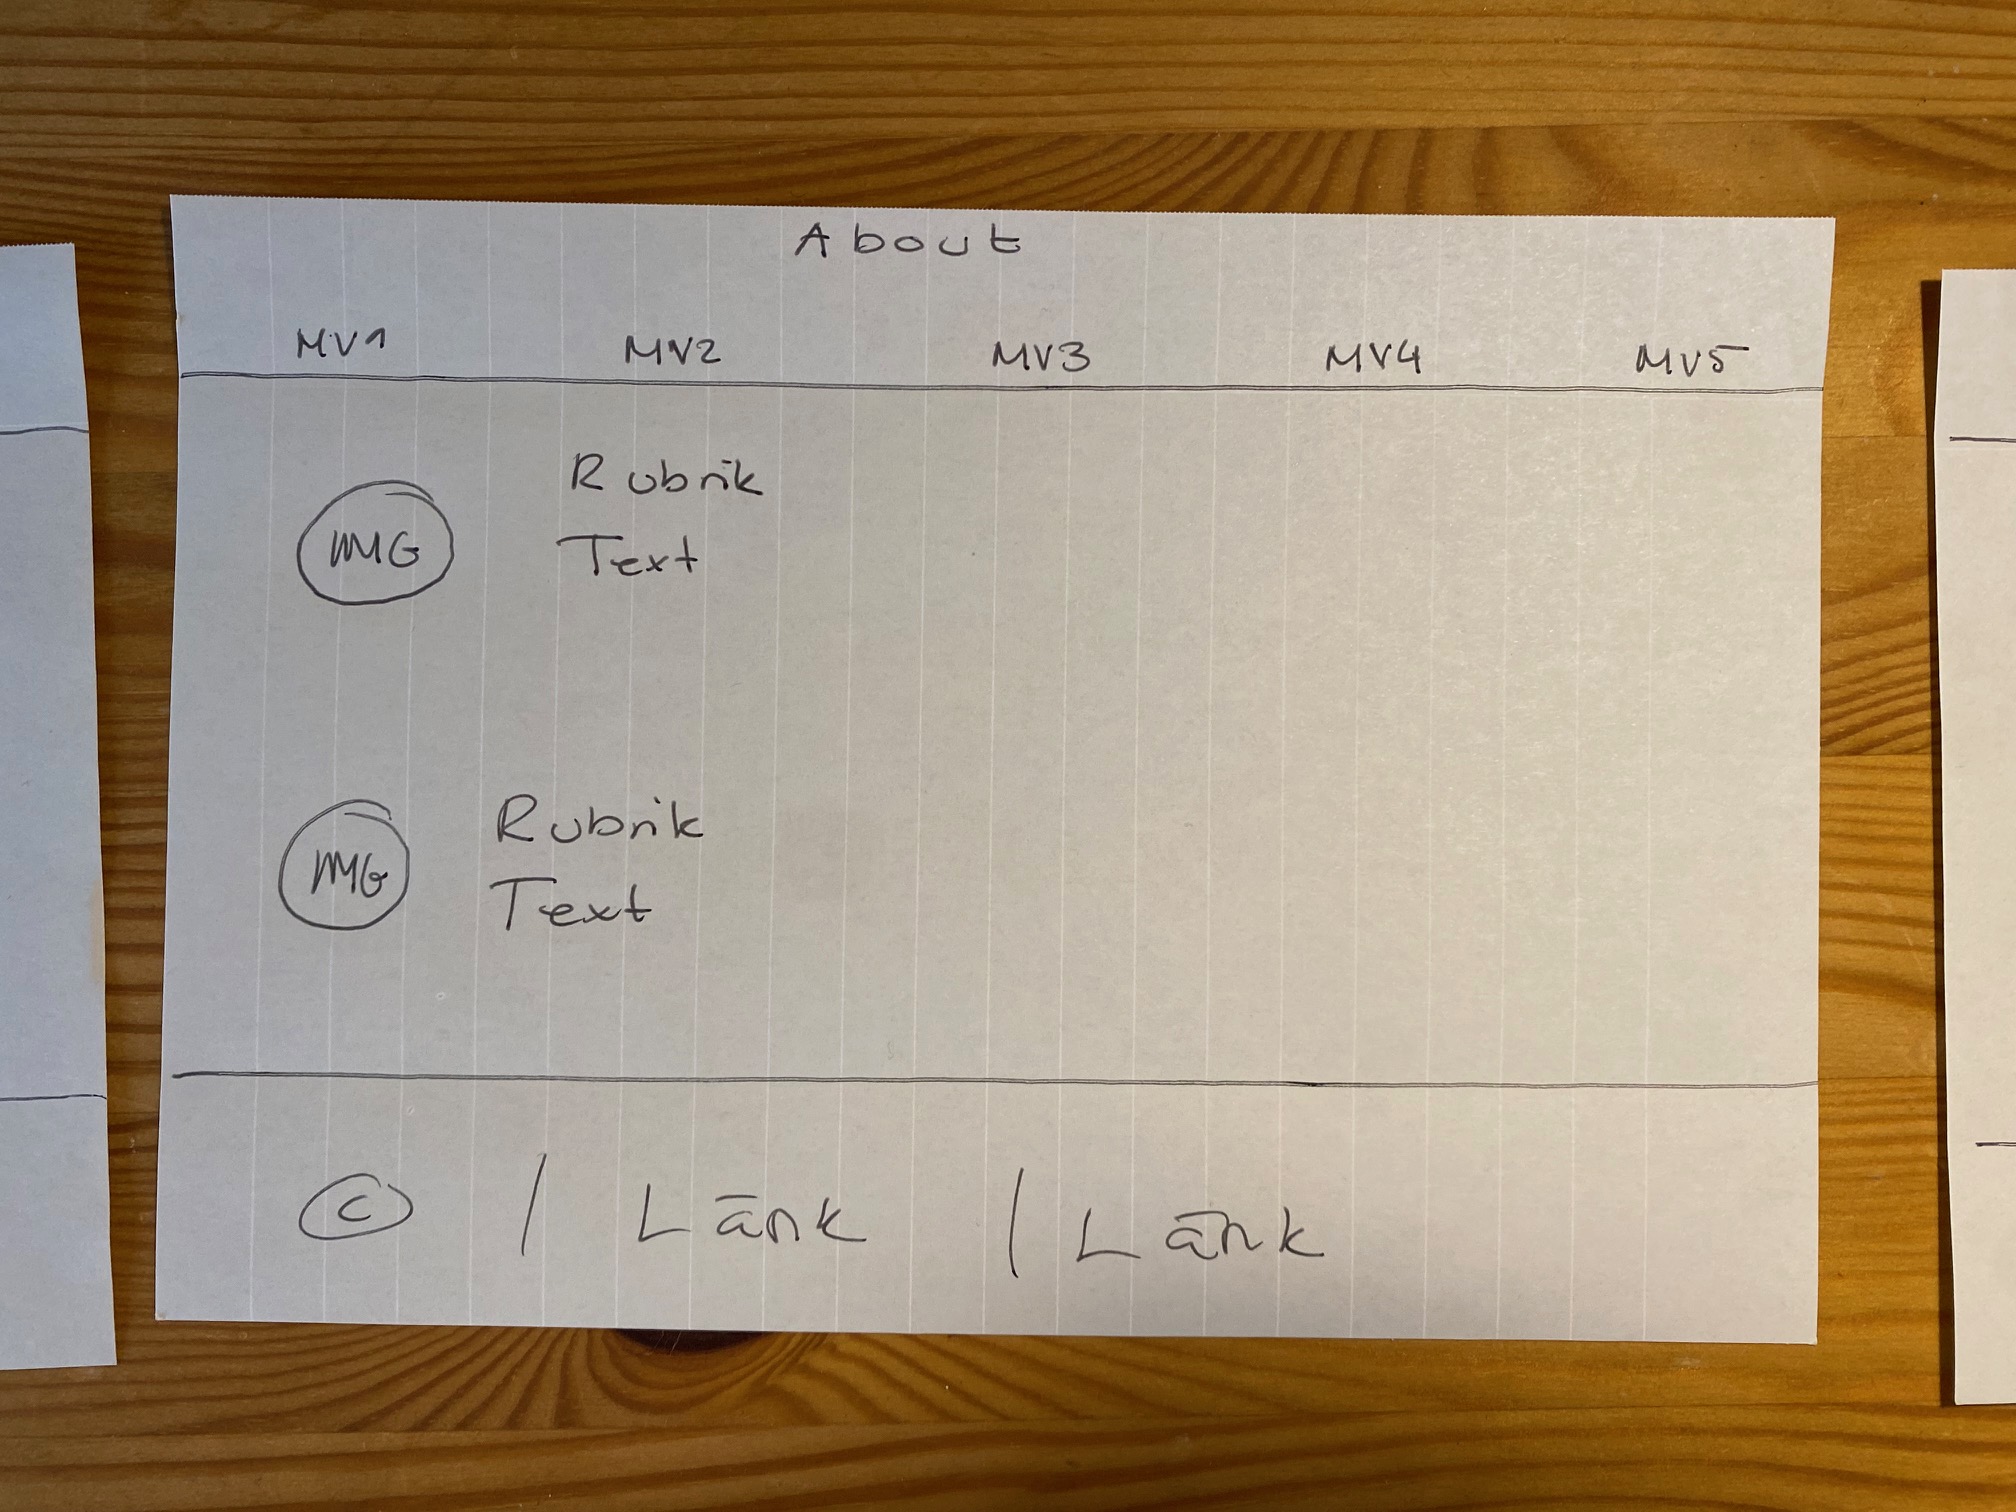 About
MV1 MV2 MV3 MV4 MV5
IMG Rubrik
Text
IMG Rubrik
Text
© / Länk / Länk